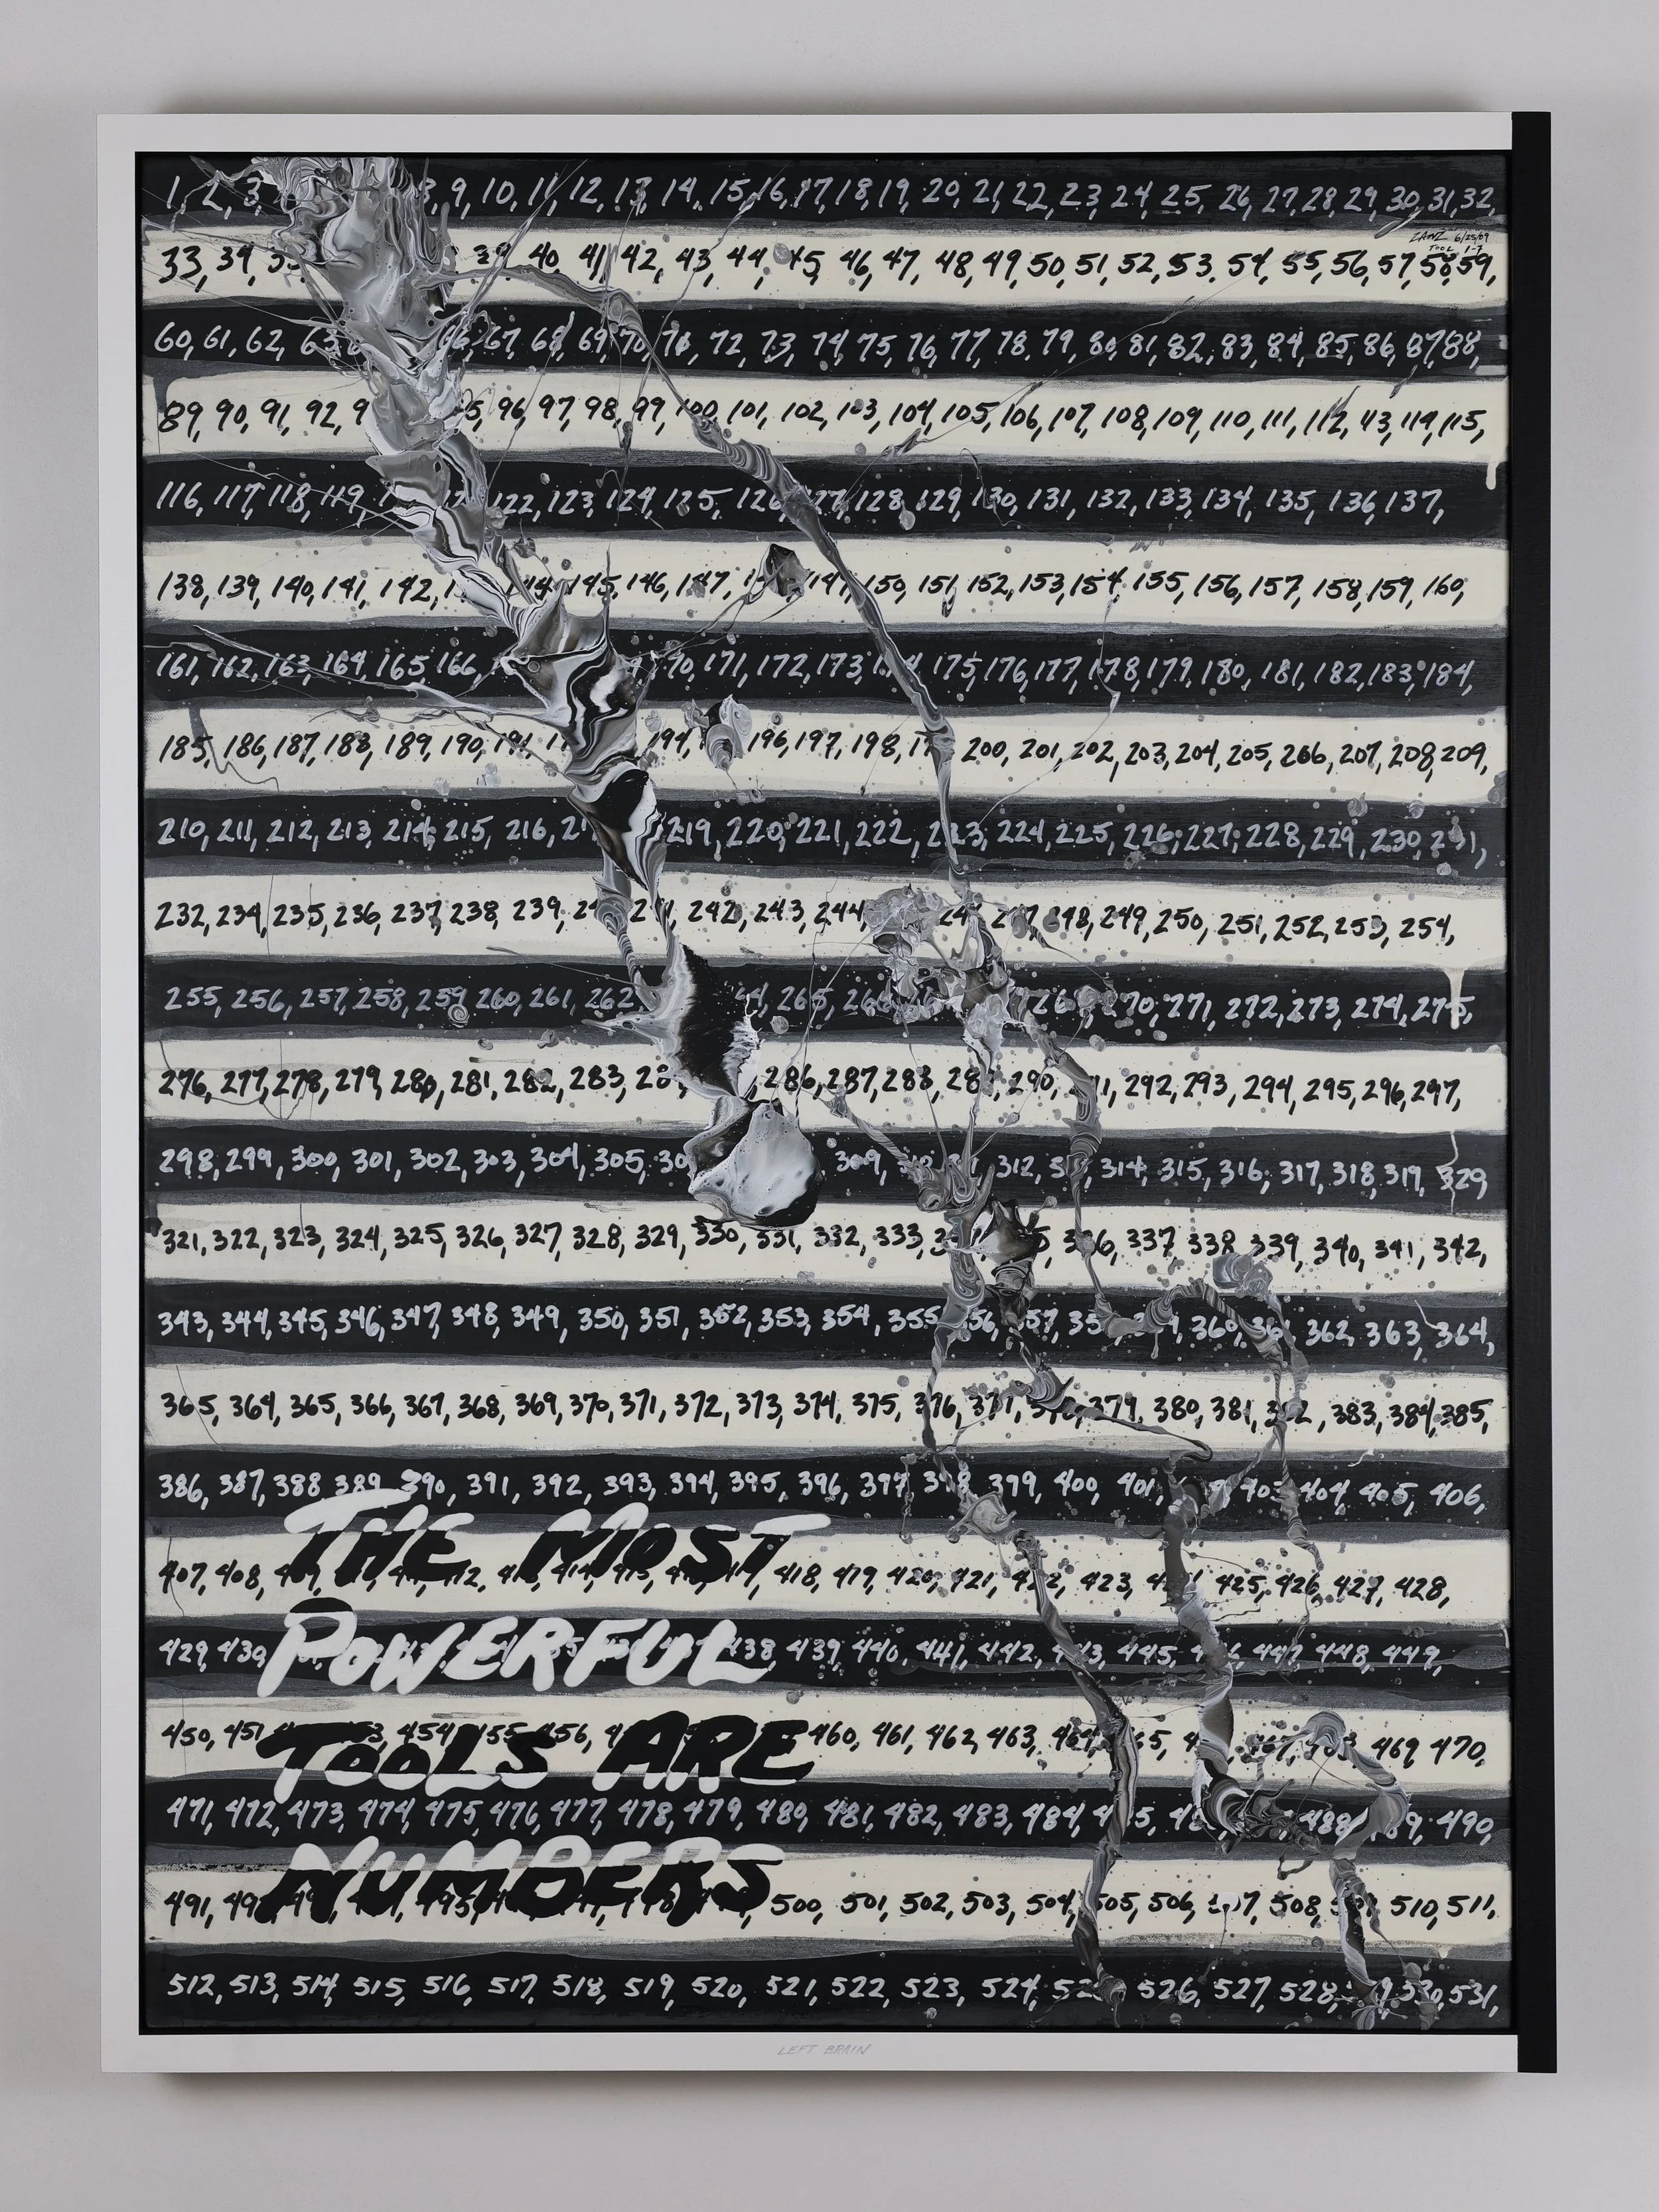 1, 2, 3, 8, 9, 10, 11, 12, 13, 14, 15, 16, 17, 18, 19, 20, 21, 22, 23, 24, 25, 26, 27, 28, 29, 30, 31, 32,
ZANZ 6/25/09
TOOL 1-7
33, 34, 39, 40, 41, 42, 43, 44, 45, 46, 47, 48, 49, 50, 51, 52, 53, 54, 55, 56, 57, 58, 59,
60, 61, 62, 63, 66, 67, 68, 69, 70, 71, 72, 73, 74, 75, 76, 77, 78, 79, 80, 81, 82, 83, 84, 85, 86, 87, 88,
89, 90, 91, 92, 96, 97, 98, 99, 100, 101, 102, 103, 104, 105, 106, 107, 108, 109, 110, 111, 112, 113, 114, 115,
116, 117, 118, 119, 122, 123, 124, 125, 126, 127, 128, 129, 130, 131, 132, 133, 134, 135, 136, 137,
138, 139, 140, 141, 142, 144, 145, 146, 147, 149, 150, 151, 152, 153, 154, 155, 156, 157, 158, 159, 160,
161, 162, 163, 164, 165, 166, 171, 172, 173, 175, 176, 177, 178, 179, 180, 181, 182, 183, 184,
185, 186, 187, 188, 189, 190, 191, 194, 196, 197, 198, 200, 201, 202, 203, 204, 205, 206, 207, 208, 209,
210, 211, 212, 213, 214, 215, 216, 219, 220, 221, 222, 223, 224, 225, 226, 227, 228, 229, 230, 231,
232, 234, 235, 236, 237, 238, 239, 242, 243, 244, 247, 248, 249, 250, 251, 252, 253, 254,
255, 256, 257, 258, 259, 260, 261, 262, 265, 270, 271, 272, 273, 274, 275,
276, 277, 278, 279, 280, 281, 282, 283, 286, 287, 288, 289, 290, 291, 292, 293, 294, 295, 296, 297,
298, 299, 300, 301, 302, 303, 304, 305, 309, 312, 314, 315, 316, 317, 318, 319, 329
321, 322, 323, 324, 325, 326, 327, 328, 329, 330, 331, 332, 333, 336, 337, 338, 339, 340, 341, 342,
343, 344, 345, 346, 347, 348, 349, 350, 351, 352, 353, 354, 355, 356, 357, 360, 361, 362, 363, 364,
365, 364, 365, 366, 367, 368, 369, 370, 371, 372, 373, 374, 375, 376, 377, 379, 380, 381, 382, 383, 384, 385,
386, 387, 388 389, 390, 391, 392, 393, 394, 395, 396, 397, 398, 399, 400, 401, 403, 404, 405, 406,
THE MOST
407, 408, 418, 419, 420, 421, 422, 423, 425, 426, 427, 428,
POWERFUL
429, 430, 438, 439, 440, 441, 442, 443, 445, 447, 448, 449,
TOOLS ARE
450, 451 454 455 456, 460, 461, 462, 463, 464, 467, 469 470,
471, 472, 473, 474, 475, 476, 477, 478, 479, 480, 481, 482, 483, 484, 488, 489, 490,
NUMBERS
491, 500, 501, 502, 503, 504, 505, 506, 507, 508, 510, 511,
512, 513, 514, 515, 516, 517, 518, 519, 520, 521, 522, 523, 524, 526, 527, 528, 530, 531,
LEFT BRAIN